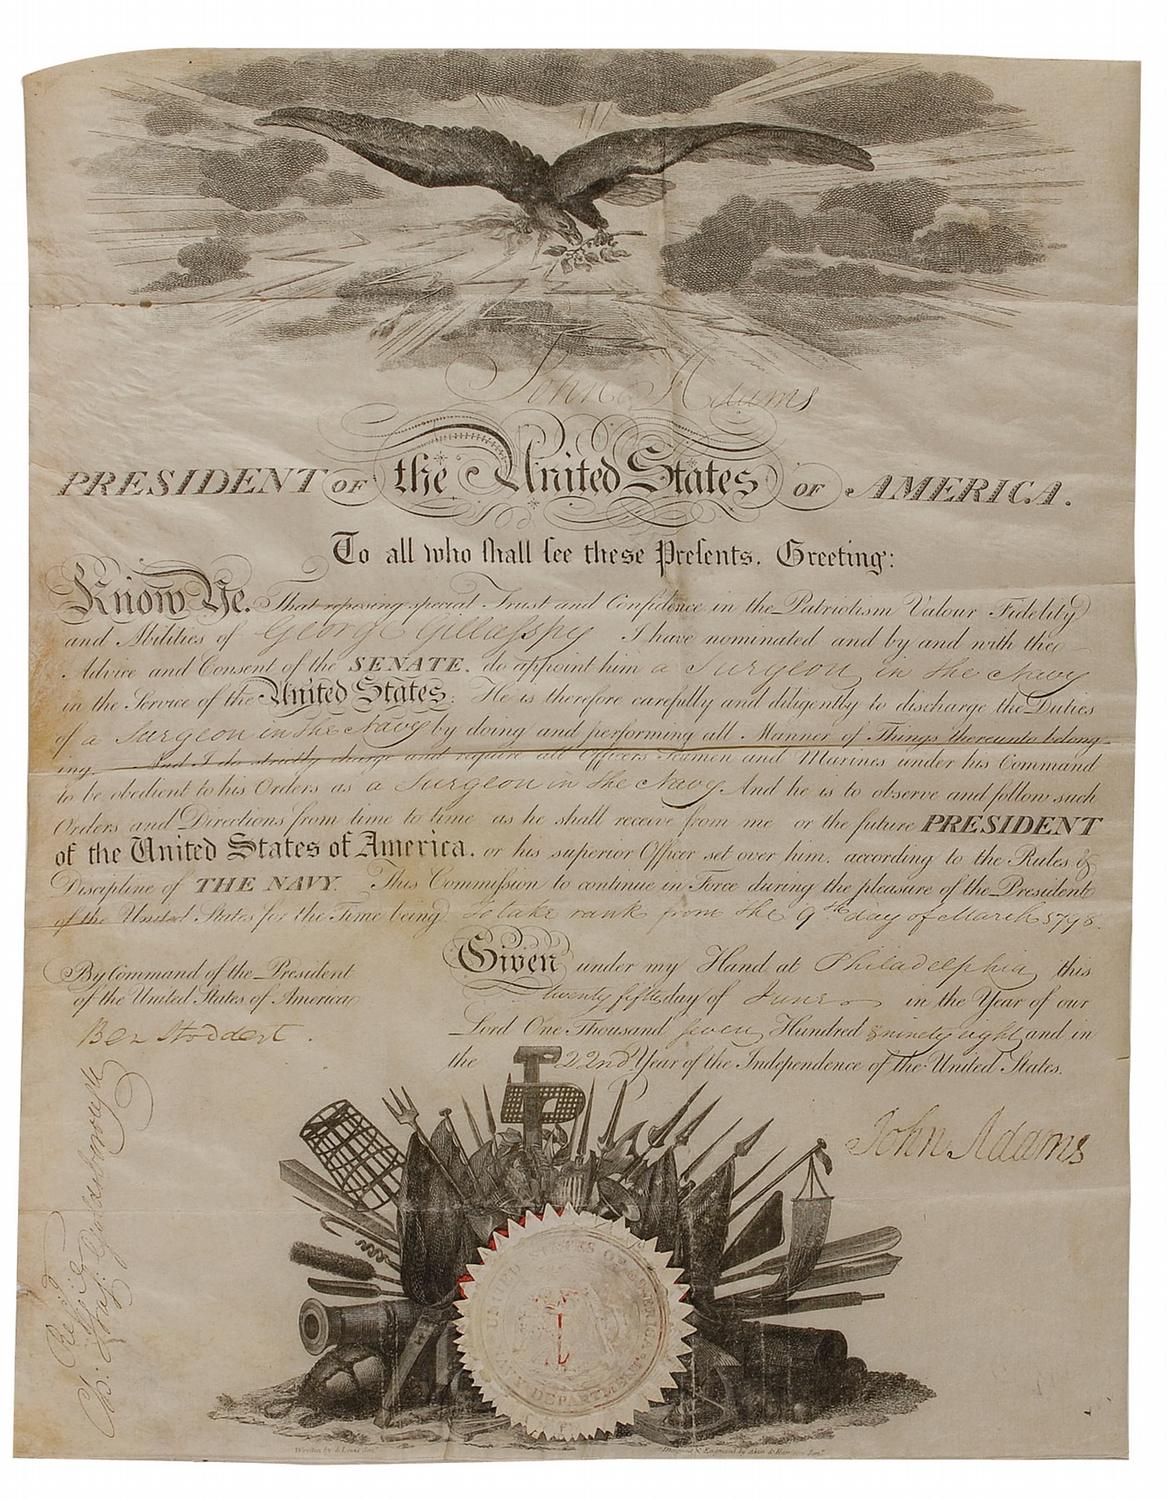 John Adams
PRESIDENT OF the United States OF AMERICA.
To all who shall see these Presents, Greeting:
Know Ye, That reposing special Trust and Confidence in the Patriotism Valour Fidelity
and Abilities of George Gillasspy I have nominated and by and with the
Advice and Consent of the SENATE, do appoint him a Surgeon in the Navy
in the Service of the United States: He is therefore carefully and diligently to discharge the Duties
of a Surgeon in the Navy by doing and performing all Manner of Things thereunto belong-
ing. And I do strictly charge and require all Officers Seamen and Marines under his Command
to be obedient to his Orders as a Surgeon in the Navy And he is to observe and follow such
Orders and Directions from time to time as he shall receive from me or the future PRESIDENT
of the United States of America, or his superior Officer set over him, according to the Rules &
Discipline of THE NAVY. This Commission to continue in Force during the pleasure of the President
of the United States for the Time being. To take rank from the 9th day of March 1798.
By Command of the President
of the United States of America
Ben Stoddert.
Given under my Hand at Philadelphia this
twenty fifth day of June in the Year of our
Lord One Thousand seven Hundred & ninety eight and in
the 22nd Year of the Independence of the United States.
John Adams
Reg'd
Ch: W. Goldsborough
UNITED STATES OF AMERICA
NAVY DEPARTMENT